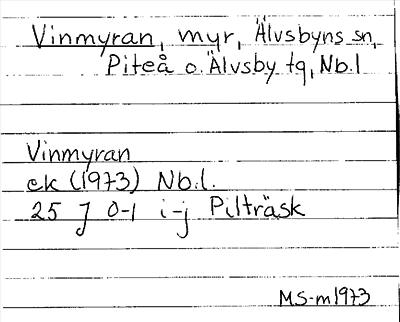 Vinmyran, myr, Älvsbyns sn,
Piteå o. Älvsby tg, Nb.l
Vinmyran
ek (1973) Nb.l.
25 J 0-1 i-j Pilträsk
MS-m1973